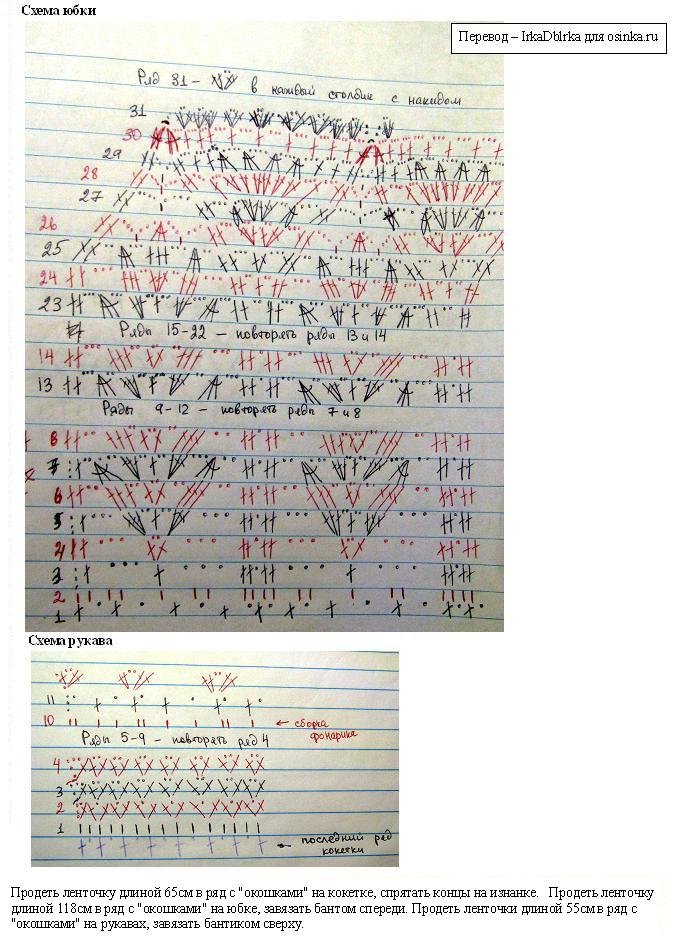 Схема юбки
Перевод – IrkaDblrka для osinka.ru
Ряд 31 – в каждый столбик с накидом
31
30
29
28
27
26
25
24
23
Ряды 15-22 – повторять ряды 13 и 14
14
13
Ряды 9-12 – повторять ряды 7 и 8
8
7
6
5
4
3
2
1
Схема рукава
11
10 ← сборка
фонарике
Ряды 5-9 – повторять ряд 4
4
3
2
1
← последний ряд
кокетки
Продеть ленточку длиной 65см в ряд с "окошками" на кокетке, спрятать концы на изнанке. Продеть ленточку
длиной 118см в ряд с "окошками" на юбке, завязать бантом спереди. Продеть ленточки длиной 55см в ряд с
"окошками" на рукавах, завязать бантиком сверху.